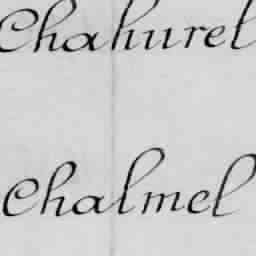 Chahuret
Chalmel